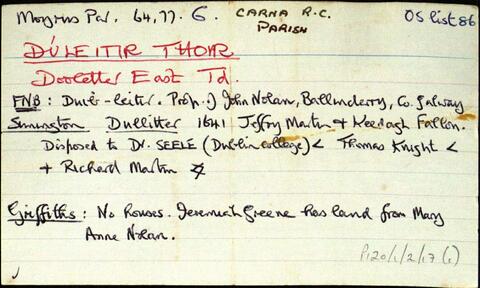 Moyrus Par. 64,77. G. CARNA R.C. PARISH OS list 86
DÚLEITIR THOIR
Dooletter East Td.
FNB: Duvé-leiter. Prop. J John Nolan, Ballinderry, Co. Galway
Simington Dullitter 1641 Jeffry Martin + Keidagh Fallon.
Disposed to Dr. SEELE (Dublin college) < Thomas Knight <
+ Richard Martin
Griffiths: No houses. Jeremiah Greene has land from Mary
Anne Nolan.
P120/1/2/17 (6)